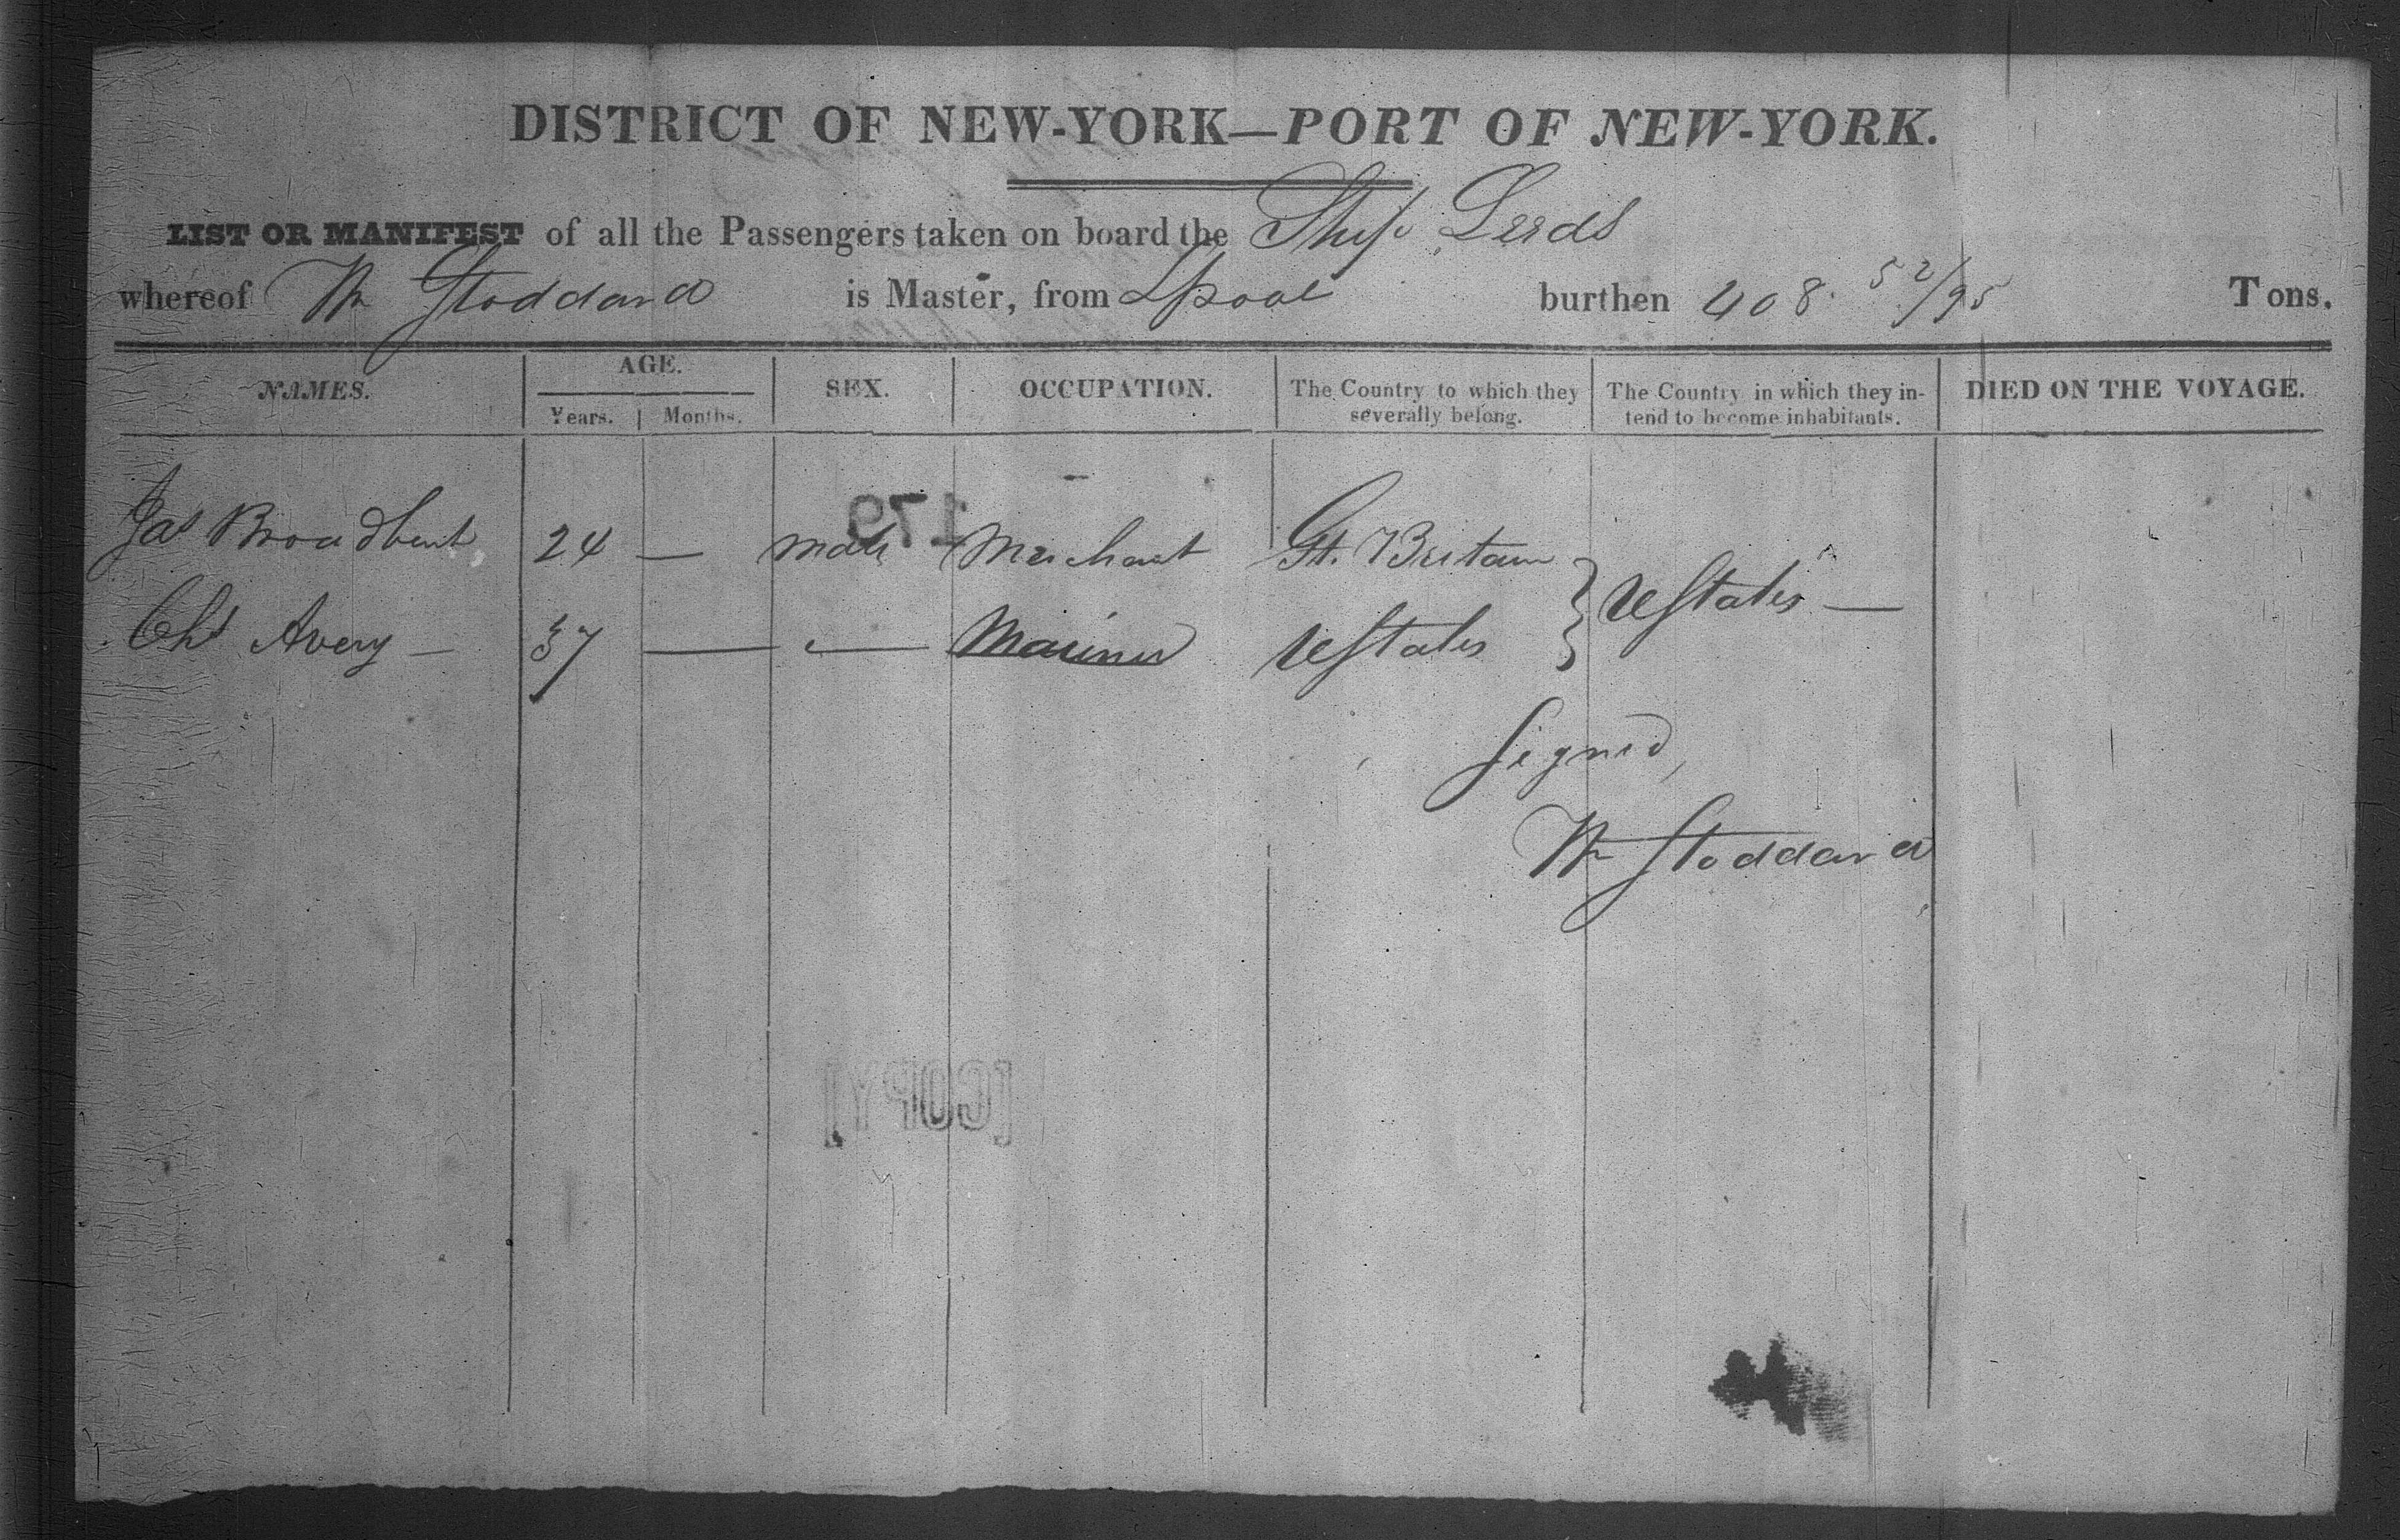 DISTRICT OF NEW-YORK—PORT OF NEW-YORK.
LIST OR MANIFEST of all the Passengers taken on board the Ship Leeds
whereof Wm Stoddard is Master, from Lpool burthen 408. 52/95 Tons.
NAMES. AGE. SEX. OCCUPATION. The Country to which they severally belong. The Country in which they intend to become inhabitants. DIED ON THE VOYAGE.
Years. Months.
179
Jas Broadbent 24 — male Merchant Gt. Britain
Chs Avery — 37 — — Mariner UStates } UStates —
Signed,
Wm Stoddard
[COPY]